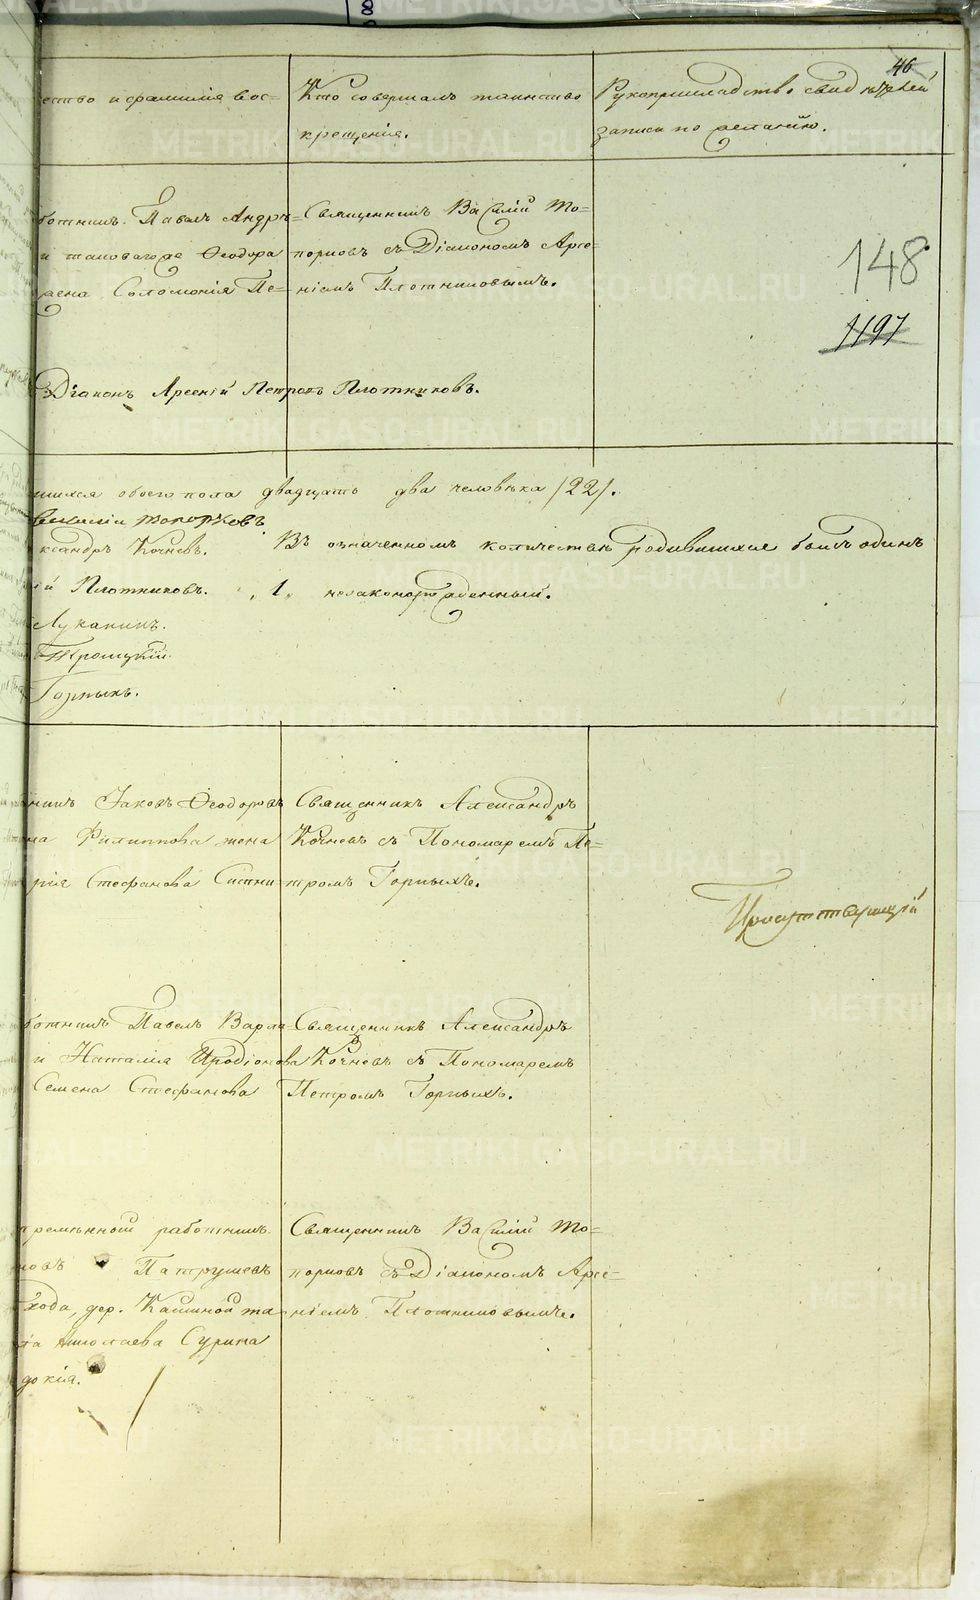 46
ество и фамилія вос-
Кто совершалъ таинство
крещенія.
Рукоприкладство свидѣтелей
записи по желанію.
ботникъ Павелъ Андрѣ-
и таковагоже Ѳеодора
Соломонія Пе-
Священникъ Василій То-
порковъ съ Діакономъ Арсе-
ніемъ Плотниковымъ.
148
1197
Діаконъ Арсеній Петровъ Плотниковъ.
шихся обоего пола двадцать два человѣка /22/.
Василій Топорковъ
ксандръ Кочневъ. Въ означенномъ количествѣ родившихся былъ одинъ
ій Плотниковъ. „1„ незаконорожденный.
Луканинъ.
Троицкій.
Горныхъ.
никъ Іаковъ Ѳеодоровъ
на Филиппова жена
рія Стефанова Ситни-
Священникъ Александръ
Кочневъ съ Пономаремъ Пе-
тромъ Горныхъ.
Присутствующій
ботникъ Павелъ Варла-
и Наталія Иродіонова
Семена Стефанова
Священникъ Александръ
Кочневъ съ Пономаремъ
Петромъ Горныхъ.
ремѣнной работникъ
новъ Патрушевъ
хода, дер. Кашиной та-
та Николаева Сурина
докія.
Священникъ Василій То-
порковъ съ Діакономъ Арсе-
ніемъ Плотниковымъ.
METRIKI.GASO-URAL.RU